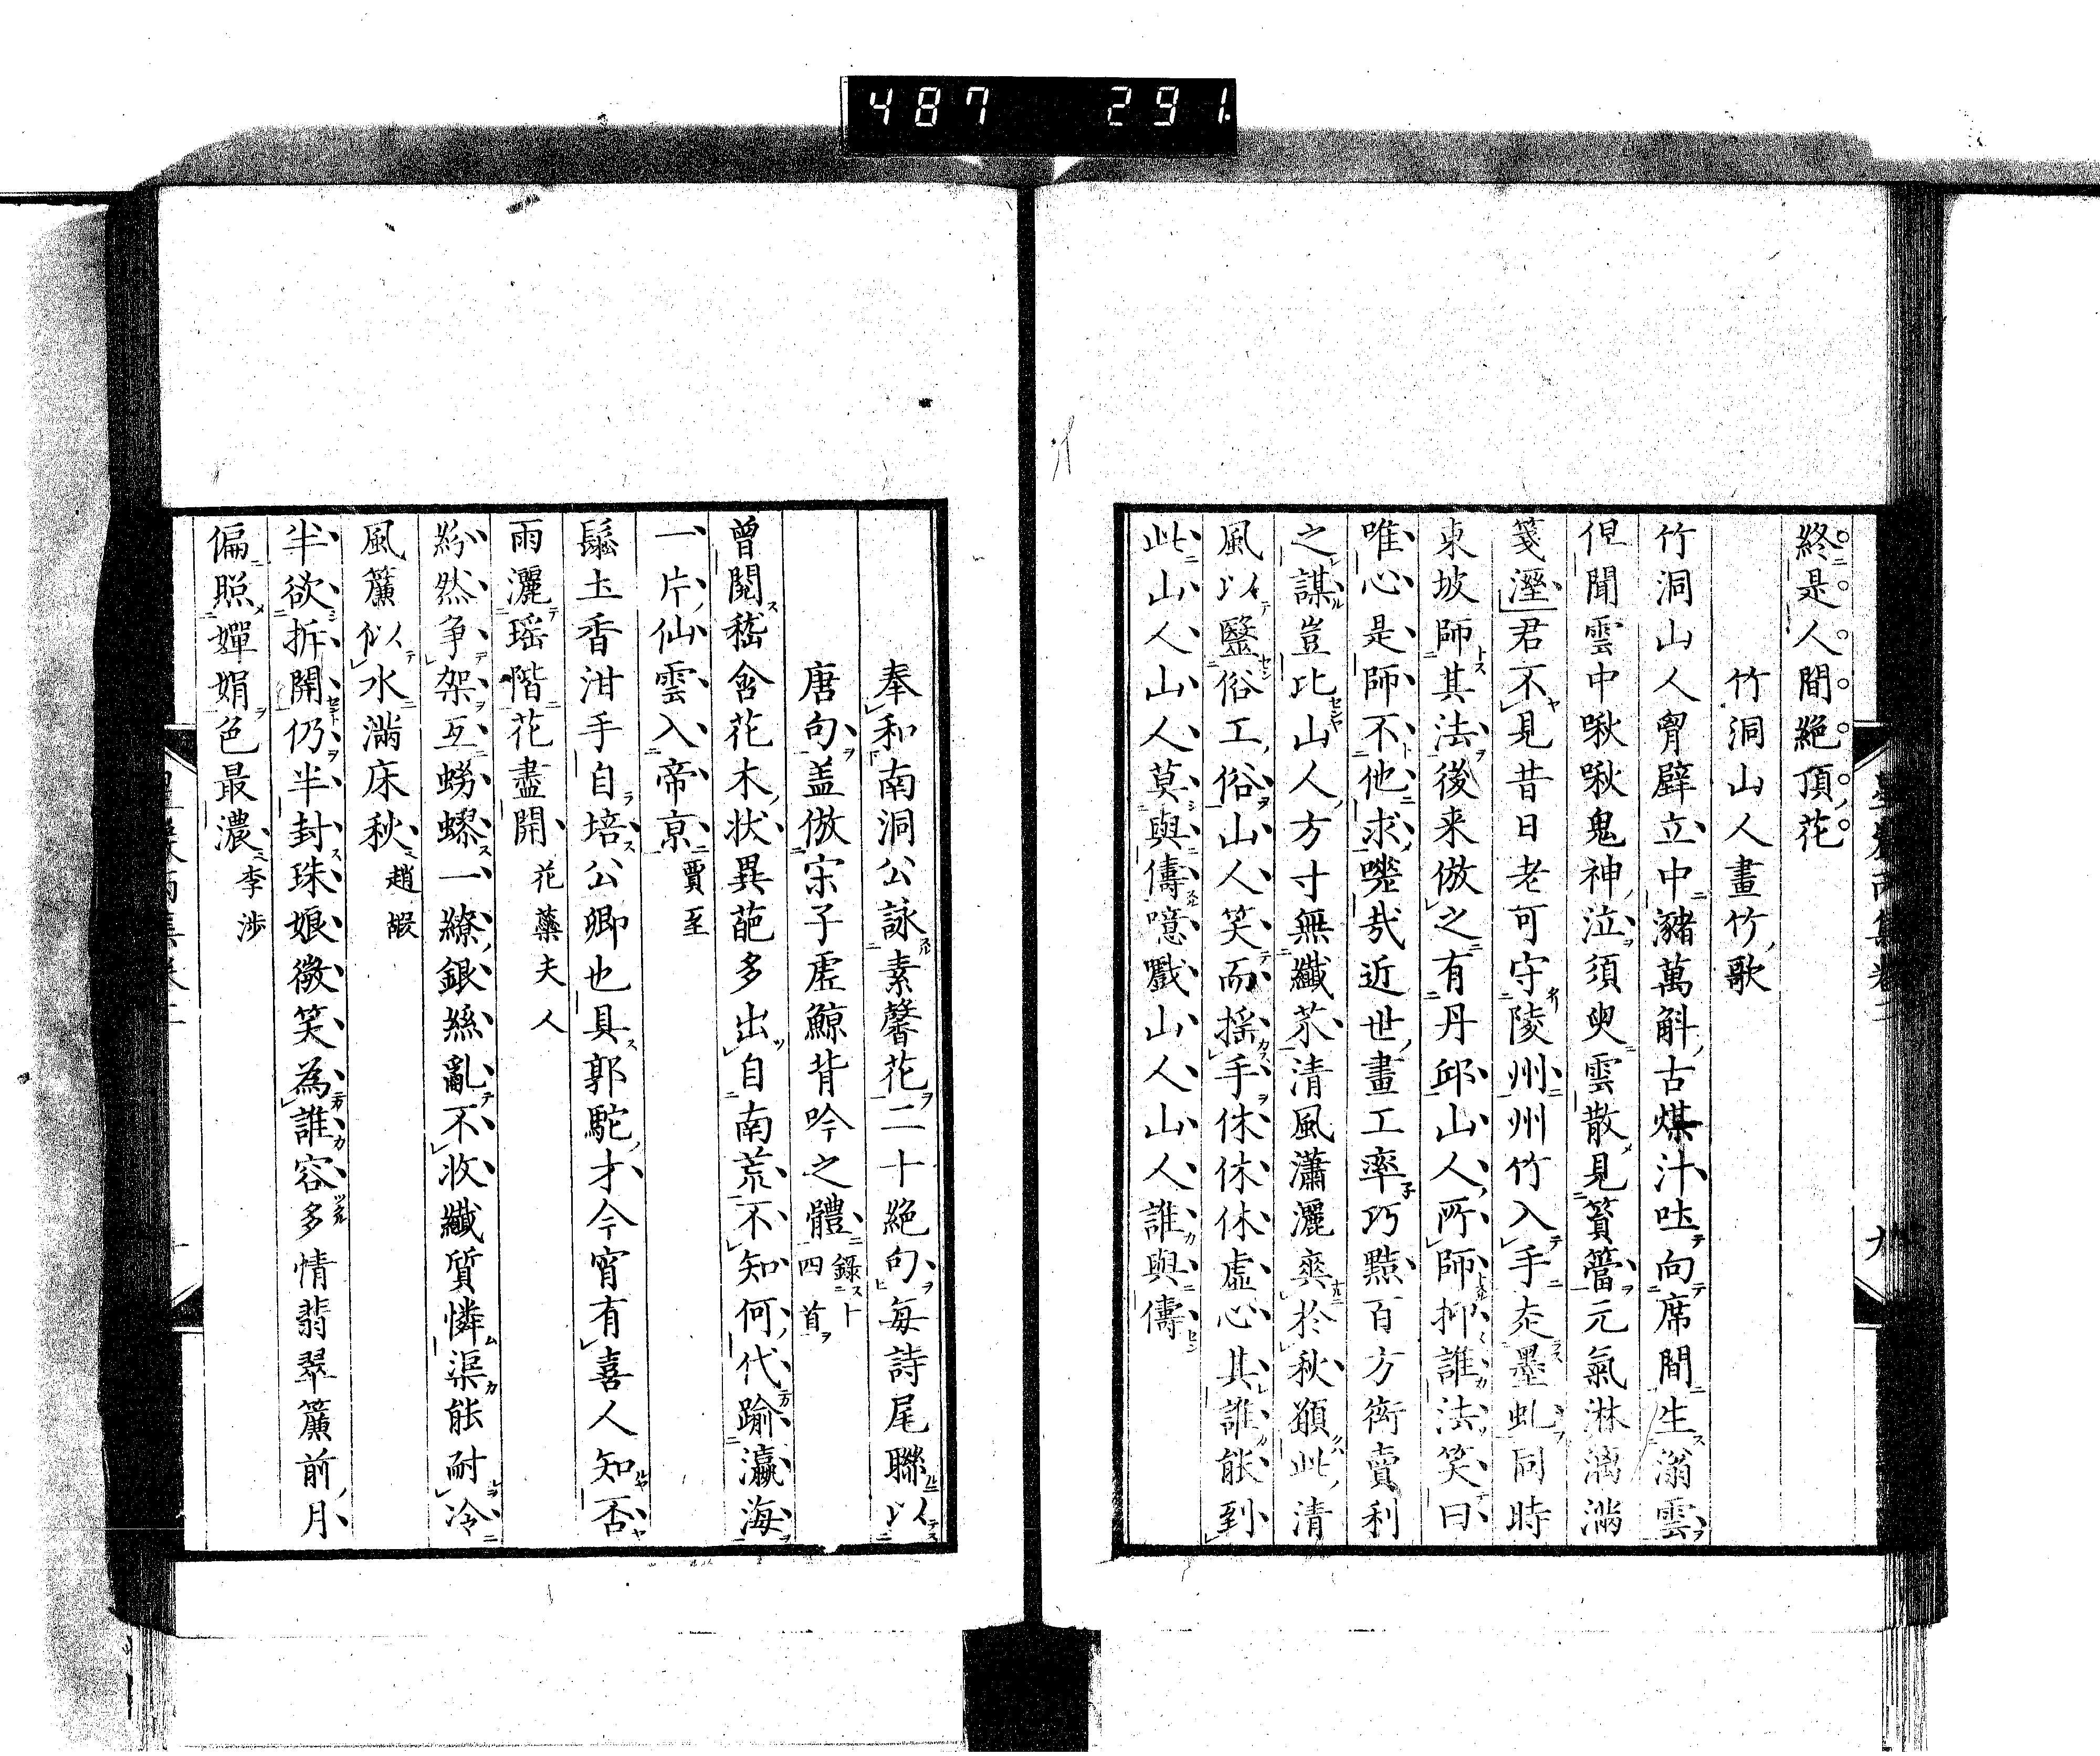 487 291
終是人間絕頂花
竹洞山人畫竹歌
竹洞山人胷壁立中瀦萬斛古煤汁吐向席間生滃雲
但聞雲中啾啾鬼神泣須臾雲散見篔簹元氣淋漓滿
箋溼君不見昔日老可守陵州州竹入手夾墨虬同時
東坡師其法後来倣之有丹邱山人所師抑誰法笑曰
唯心是師不他求嗟哉近世畫工率巧黠百方衒賣利
之謀豈比山人方寸無纖芥清風瀟灑爽於秋願此清
風以醫俗工俗山人笑而搖手休休休虛心其誰能到
此山人山人莫與儔噫戲山人山人誰與儔
九
奉和南洞公詠素馨花二十絕句每詩尾聯以
唐句盖倣宋子虛鯨背吟之體錄四首
曾閱嵇含花木状異葩多出自南荒不知何代踰瀛海
一片仙雲入帝京賈至
鬆土香泔手自培公卿也具郭駝才今宵有喜人知否
雨灑瑤階花盡開花蘂夫人
紛然争架互蟧蟉一繚銀絲亂不收纖質憐渠能耐冷
風簾似水滿床秋趙嘏
半欲拆開仍半封珠娘微笑為誰容多情翡翠簾前月
偏照嬋娟色最濃李渉